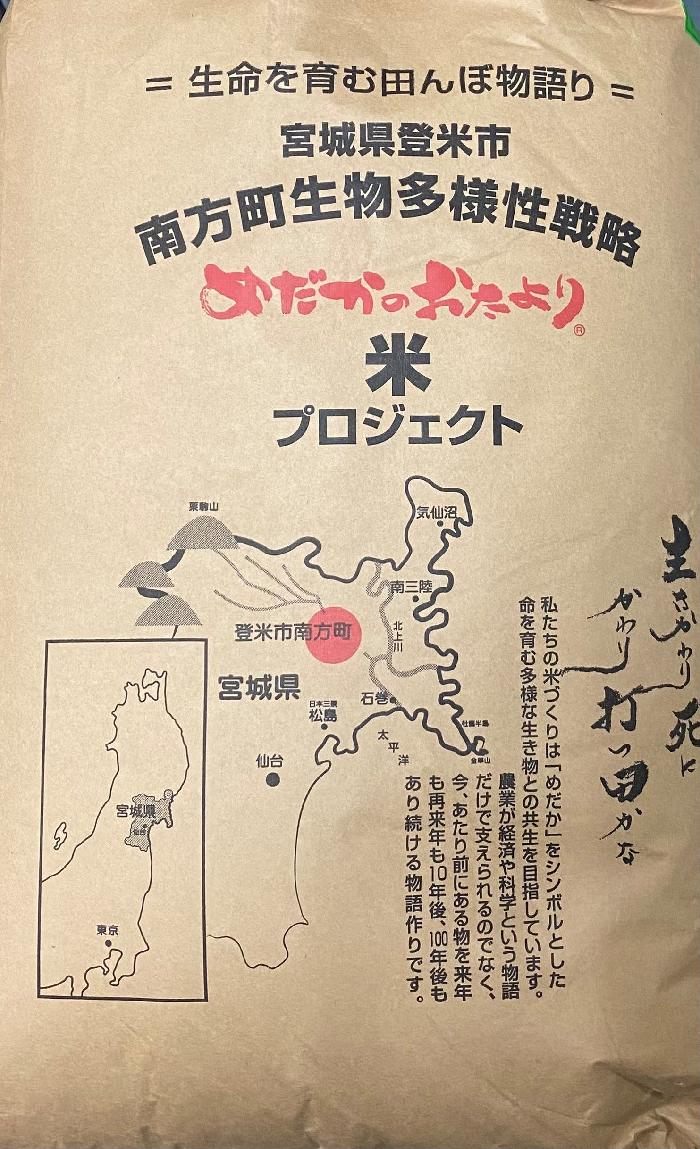 = 生命を育む田んぼ物語り =
宮城県登米市
南方町生物多様性戦略
めだかのおたより®
米
プロジェクト
栗駒山
気仙沼
南三陸
登米市南方町
北上川
宮城県
石巻
日本三景
松島
牡鹿半島
金華山
太平洋
仙台
宮城県
仙台
東京
生きかわり死に
かわり打つ田かな
私たちの米づくりは「めだか」をシンボルとした
命を育む多様な生き物との共生を目指しています。
農業が経済や科学という物語
だけで支えられるのでなく、
今、あたり前にある物を来年
も再来年も10年後、100年後も
あり続ける物語作りです。